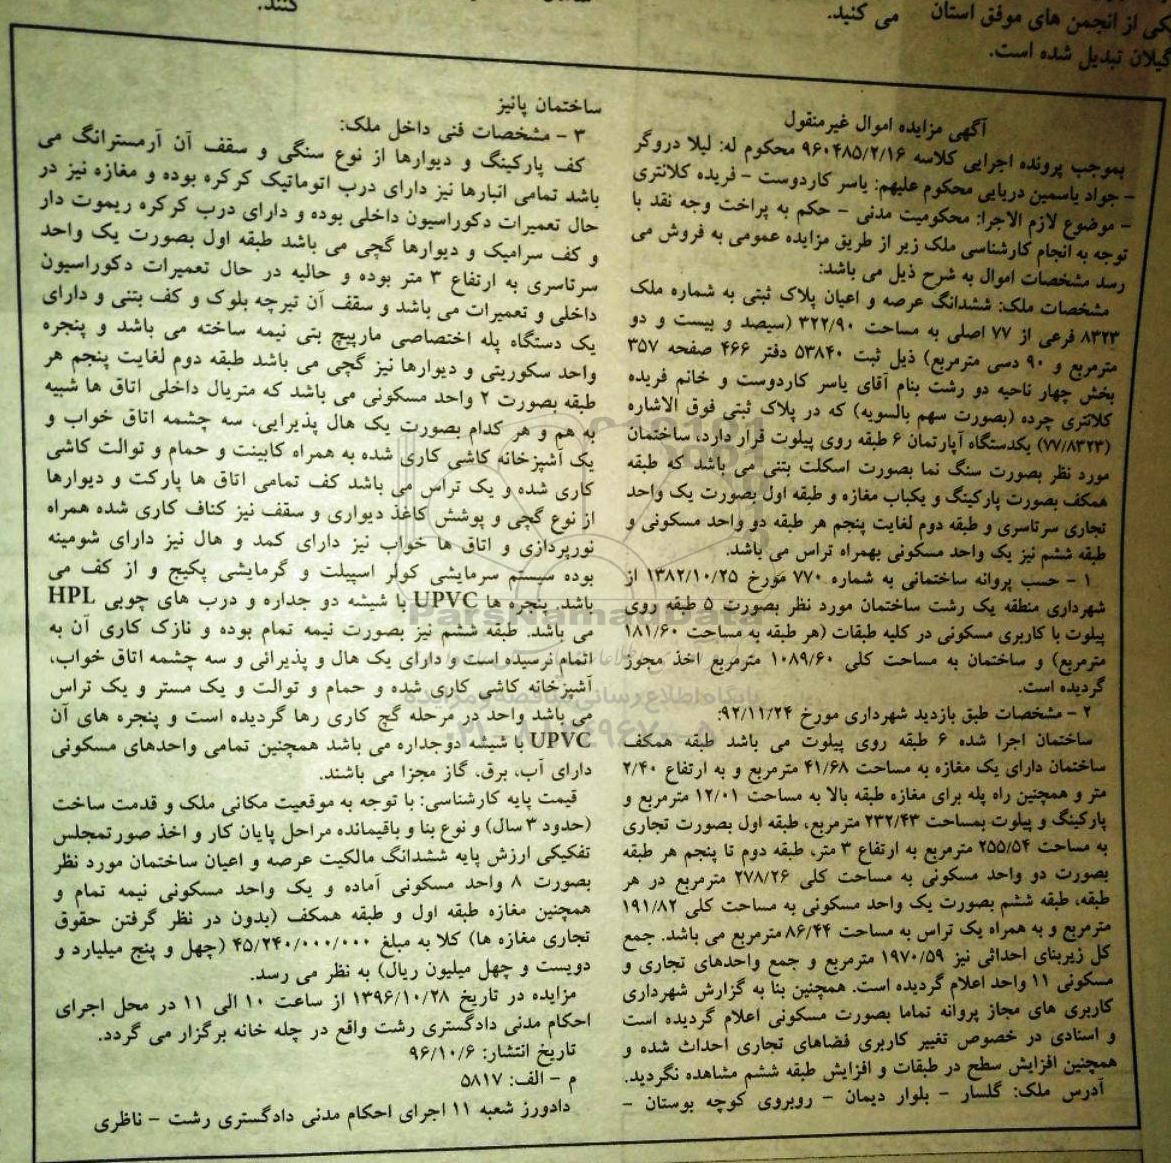 کنند.
یکی از انجمن های موفق استان می کنید.
گیلان تبدیل شده است.
آگهی مزایده اموال غیرمنقول
بموجب پرونده اجرایی کلاسه ۹۶۰۴۸۵/۲/۱۶ محکوم له: لیلا دروگر
- جواد یاسمین دریایی محکوم علیهم: یاسر کاردوست - فریده کلانتری
- موضوع لازم الاجرا: محکومیت مدنی - حکم به پراخت وجه نقد با
توجه به انجام کارشناسی ملک زیر از طریق مزایده عمومی به فروش می
رسد مشخصات اموال به شرح ذیل می باشد:
مشخصات ملک: ششدانگ عرصه و اعیان پلاک ثبتی به شماره ملک
۸۳۲۳ فرعی از ۷۷ اصلی به مساحت ۳۲۲/۹۰ (سیصد و بیست و دو
مترمربع و ۹۰ دسی مترمربع) ذیل ثبت ۵۳۸۴۰ دفتر ۴۶۶ صفحه ۳۵۷
بخش چهار ناحیه دو رشت بنام آقای یاسر کاردوست و خانم فریده
کلانتری چرده (بصورت سهم بالسویه) که در پلاک ثبتی فوق الاشاره
(۷۷/۸۳۲۳) یکدستگاه آپارتمان ۶ طبقه روی پیلوت قرار دارد، ساختمان
مورد نظر بصورت سنگ نما بصورت اسکلت بتنی می باشد که طبقه
همکف بصورت پارکینگ و یکباب مغازه و طبقه اول بصورت یک واحد
تجاری سرتاسری و طبقه دوم لغایت پنجم هر طبقه دو واحد مسکونی و
طبقه ششم نیز یک واحد مسکونی بهمراه تراس می باشد.
۱ - حسب پروانه ساختمانی به شماره ۷۷۰ مورخ ۱۳۸۲/۱۰/۲۵ از
شهرداری منطقه یک رشت ساختمان مورد نظر بصورت ۵ طبقه روی
پیلوت با کاربری مسکونی در کلیه طبقات (هر طبقه به مساحت ۱۸۱/۶۰
مترمربع) و ساختمان به مساحت کلی ۱۰۸۹/۶۰ مترمربع اخذ مجوز
گردیده است.
۲ - مشخصات طبق بازدید شهرداری مورخ ۹۲/۱۱/۲۴:
ساختمان اجرا شده ۶ طبقه روی پیلوت می باشد طبقه همکف
ساختمان دارای یک مغازه به مساحت ۴۱/۶۸ مترمربع و به ارتفاع ۲/۴۰
متر و همچنین راه پله برای مغازه طبقه بالا به مساحت ۱۲/۰۱ مترمربع و
پارکینگ و پیلوت بمساحت ۲۳۲/۴۳ مترمربع، طبقه اول بصورت تجاری
به مساحت ۲۵۵/۵۴ مترمربع به ارتفاع ۳ متر، طبقه دوم تا پنجم هر طبقه
بصورت دو واحد مسکونی به مساحت کلی ۲۷۸/۲۶ مترمربع در هر
طبقه، طبقه ششم بصورت یک واحد مسکونی به مساحت کلی ۱۹۱/۸۲
مترمربع و به همراه یک تراس به مساحت ۸۶/۴۴ مترمربع می باشد. جمع
کل زیربنای احداثی نیز ۱۹۷۰/۵۹ مترمربع و جمع واحدهای تجاری و
مسکونی ۱۱ واحد اعلام گردیده است. همچنین بنا به گزارش شهرداری
کاربری های مجاز پروانه تماما بصورت مسکونی اعلام گردیده است
و اسنادی در خصوص تغییر کاربری فضاهای تجاری احداث شده و
همچنین افزایش سطح در طبقات و افزایش طبقه ششم مشاهده نگردید.
آدرس ملک: گلسار - بلوار دیمان - روبروی کوچه بوستان -
ساختمان پانیز
۳ - مشخصات فنی داخل ملک:
کف پارکینگ و دیوارها از نوع سنگی و سقف آن آرمسترانگ می
باشد تمامی انبارها نیز دارای درب اتوماتیک کرکره بوده و مغازه نیز در
حال تعمیرات دکوراسیون داخلی بوده و دارای درب کرکره ریموت دار
و کف سرامیک و دیوارها گچی می باشد طبقه اول بصورت یک واحد
سرتاسری به ارتفاع ۳ متر بوده و حالیه در حال تعمیرات دکوراسیون
داخلی و تعمیرات می باشد و سقف آن تیرچه بلوک و کف بتنی و دارای
یک دستگاه پله اختصاصی مارپیچ بتی نیمه ساخته می باشد و پنجره
واحد سکوریتی و دیوارها نیز گچی می باشد طبقه دوم لغایت پنجم هر
طبقه بصورت ۲ واحد مسکونی می باشد که متریال داخلی اتاق ها شبیه
به هم و هر کدام بصورت یک هال پذیرایی، سه چشمه اتاق خواب و
یک آشپزخانه کاشی کاری شده به همراه کابینت و حمام و توالت کاشی
کاری شده و یک تراس می باشد کف تمامی اتاق ها پارکت و دیوارها
از نوع گچی و پوشش کاغذ دیواری و سقف نیز کناف کاری شده همراه
نورپردازی و اتاق ها خواب نیز دارای کمد و هال نیز دارای شومینه
بوده سیستم سرمایشی کولر اسپیلت و گرمایشی پکیج و از کف می
باشد. پنجره ها UPVC با شیشه دو جداره و درب های چوبی HPL
می باشد. طبقه ششم نیز بصورت نیمه تمام بوده و نازک کاری آن به
اتمام نرسیده است و دارای یک هال و پذیرائی و سه چشمه اتاق خواب،
آشپزخانه کاشی کاری شده و حمام و توالت و یک مستر و یک تراس
می باشد واحد در مرحله گچ کاری رها گردیده است و پنجره های آن
UPVC با شیشه دوجداره می باشد همچنین تمامی واحدهای مسکونی
دارای آب، برق، گاز مجزا می باشند.
قیمت پایه کارشناسی: با توجه به موقعیت مکانی ملک و قدمت ساخت
(حدود ۳ سال) و نوع بنا و باقیمانده مراحل پایان کار و اخذ صورتمجلس
تفکیکی ارزش پایه ششدانگ مالکیت عرصه و اعیان ساختمان مورد نظر
بصورت ۸ واحد مسکونی آماده و یک واحد مسکونی نیمه تمام و
همچنین مغازه طبقه اول و طبقه همکف (بدون در نظر گرفتن حقوق
تجاری مغازه ها) کلا به مبلغ ۴۵/۲۴۰/۰۰۰/۰۰۰ (چهل و پنج میلیارد و
دویست و چهل میلیون ریال) به نظر می رسد.
مزایده در تاریخ ۱۳۹۶/۱۰/۲۸ از ساعت ۱۰ الی ۱۱ در محل اجرای
احکام مدنی دادگستری رشت واقع در چله خانه برگزار می گردد.
تاریخ انتشار: ۹۶/۱۰/۶
م - الف: ۵۸۱۷
دادورز شعبه ۱۱ اجرای احکام مدنی دادگستری رشت - ناظری
ParsNamadData
پایگاه اطلاع رسانی مناقصه و مزایده